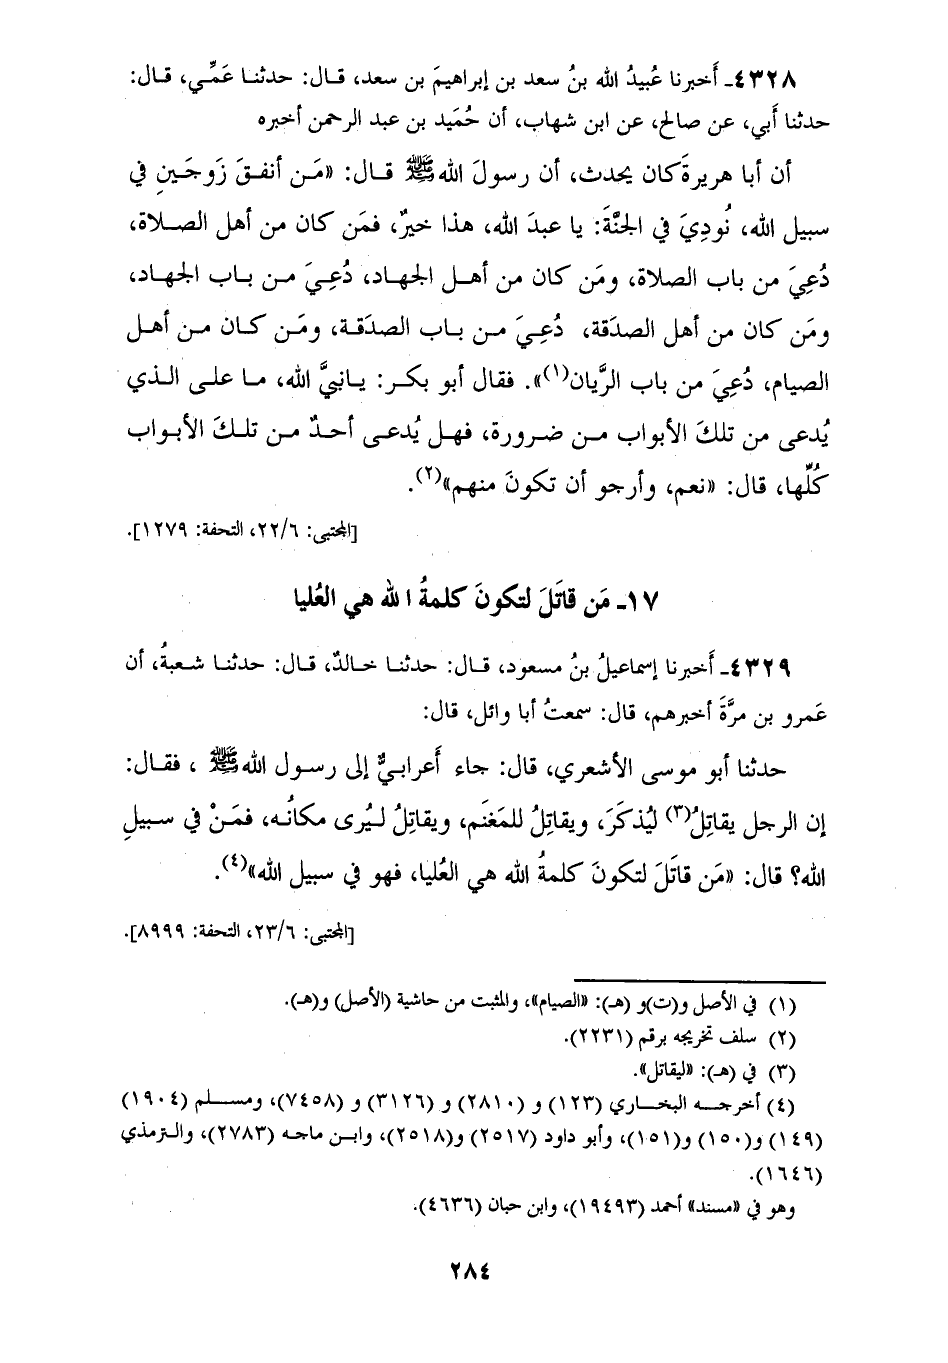 ٤٣٢٨ـ أَخبرنا عُبيدُ الله بنُ سعد بن إبراهيمَ بن سعد، قال: حدثنا عَمِّي، قال:
حدثنا أَبي، عن صالح، عن ابن شهاب، أن حُمَيد بن عبد الرحمن أخبره
أن أبا هريرةَ كان يحدث، أن رسولَ الله ﷺ قال: «مَن أنفقَ زَوجَينِ في
سبيل الله، نُودِيَ في الجنَّةَ: يا عبدَ الله، هذا خيرٌ، فمَن كان من أهل الصلاةُ،
دُعِيَ من باب الصلاة، ومَن كان من أهل الجهاد، دُعِيَ من باب الجهاد،
ومَن كان من أهل الصدَقة، دُعِيَ من باب الصدَقة، ومَن كان من أهل
الصيام، دُعِيَ من باب الرَّيان(١)». فقال أبو بكر: يا نبيَّ الله، ما على الذي
يُدعى من تلكَ الأبواب من ضرورة، فهل يُدعى أحدٌ من تلكَ الأبواب
كُلِّها، قال: «نعم، وأرجو أن تكونَ منهم»(٢).
[المجتبى: ٢٢/٦، التحفة: ١٢٧٩].
١٧ـ مَن قاتَلَ لتكونَ كلمةُ الله هي العُليا
٤٣٢٩ـ أَخبرنا إسماعيلُ بنُ مسعود، قال: حدثنا خالدٌ، قال: حدثنا شعبةُ، أن
عَمرو بن مرَّةَ أخبرهم، قال: سمعتُ أبا وائل، قال:
حدثنا أبو موسى الأشعري، قال: جاء أَعرابيٌّ إلى رسول الله ﷺ، فقال:
إن الرجل يقاتِلُ(٣) ليُذكَرَ، ويقاتِلُ للمَغنَم، ويقاتِلُ ليُرى مكانُه، فمَنْ في سبيلِ
الله؟ قال: «مَن قاتَلَ لتكونَ كلمةُ الله هي العُليا، فهو في سبيل الله»(٤).
[المجتبى: ٢٣/٦، التحفة: ٨٩٩٩].
(١) في الأصل و(ت)و (هـ): «الصيام»، والمثبت من حاشية (الأصل) و(هـ).
(٢) سلف تخريجه برقم (٢٢٣١).
(٣) في (هـ): «ليقاتل».
(٤) أخرجه البخاري (١٢٣) و (٢٨١٠) و (٣١٢٦) و (٧٤٥٨)، ومسلم (١٩٠٤)
(١٤٩) و(١٥٠) و(١٥١)، وأبو داود (٢٥١٧) و(٢٥١٨)، وابن ماجه (٢٧٨٣)، والترمذي
(١٦٤٦).
وهو في «مسند» أحمد (١٩٤٩٣)، وابن حبان (٤٦٣٦).
٢٨٤